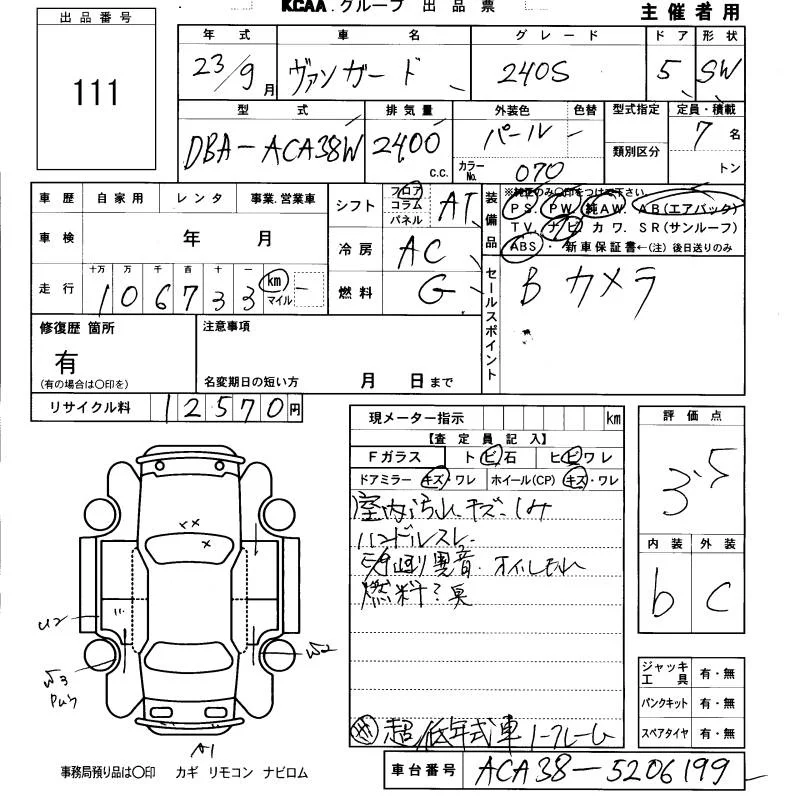 KCAA.グループ 出品票
主催者用
出品番号
111
年式 車名 グレード ドア 形状
23/9月 ヴァンガード 240S 5 SW
型式 排気量 外装色 色替 型式指定 定員・積載
DBA-ACA38W 2400 c.c. パール - 7名
カラーNo. 070 類別区分 トン
車歴 自家用 レンタ 事業.営業車
車検 年 月
走行 十万 万 千 百 十 一
106733 km マイル -
シフト フロア コラム パネル AT
冷房 AC
燃料 G
装備品
※純正のみ〇印をつけて下さい。
PS. PW. 純AW. AB(エアバッグ)
TV. ナビ カワ. SR(サンルーフ)
ABS・新車保証書←(注)後日送りのみ
セールスポイント
Bカメラ
修復歴 箇所
有
(有の場合は〇印を)
注意事項
名変期日の短い方 月 日まで
リサイクル料 12570円
現メーター指示 km
【査定員記入】
Fガラス トビ石 ヒビワレ
ドアミラー キズ・ワレ ホイール(CP) キズ・ワレ
室内汚れ.キズ.しみ
ハンドルスレ
異音.オイルもれ
燃料?臭
超低年式車
評価点
3.5
内装 外装
b C
ジャッキ工具 有・無
パンクキット 有・無
スペアタイヤ 有・無
U2
W3
W2
A1
事務局預り品は〇印 カギ リモコン ナビロム
車台番号 ACA38-5206199